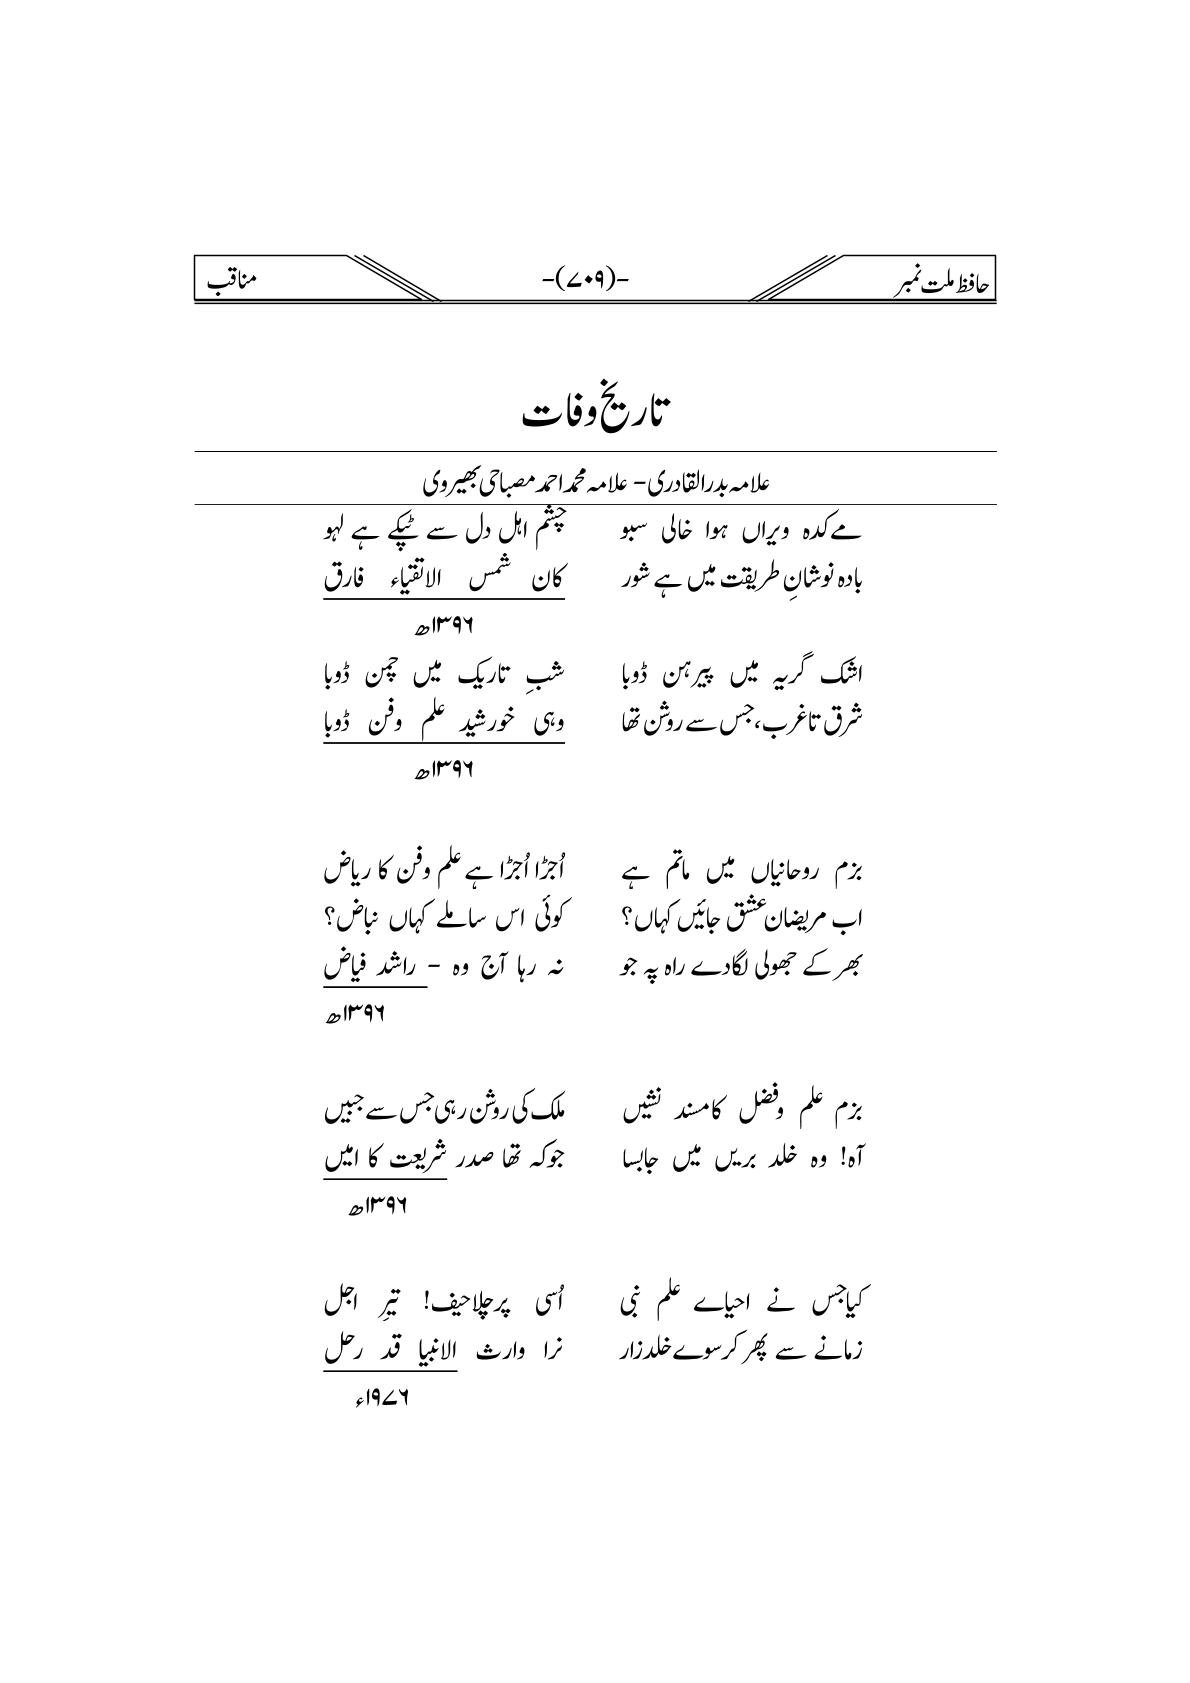 حافظ ملت نمبر -(۷۰۹)- مناقب
تاریخ وفات
علامہ بدرالقادری – علامہ محمد احمد مصباحی بھیروی
مے کدہ ویراں ہوا خالی سبو چشم اہل دل سے ٹپکے ہے لہو
بادہ نوشانِ طریقت میں ہے شور کان شمس الاتقیاء فارق
۱۳۹۶ھ
اشک گریہ میں پیرہن ڈوبا شبِ تاریک میں چمن ڈوبا
شرق تا غرب، جس سے روشن تھا وہی خورشید علم وفن ڈوبا
۱۳۹۶ھ
بزم روحانیاں میں ماتم ہے اُجڑا اُجڑا ہے علم وفن کا ریاض
اب مریضان عشق جائیں کہاں؟ کوئی اس سا ملے کہاں نباض؟
بھر کے جھولی لگا دے راہ پہ جو نہ رہا آج وہ – راشد فیاض
۱۳۹۶ھ
بزم علم وفضل کا مسند نشیں ملک کی روشن رہی جس سے جبیں
آہ! وہ خلد بریں میں جابسا جو کہ تھا صدر شریعت کا امیں
۱۳۹۶ھ
کیا جس نے احیاے علم نبی اُسی پر چلا حیف! تیرِ اجل
زمانے سے پھر کر سوے خلد زار نرا وارث الانبیا قد رحل
۱۹۷۶ء